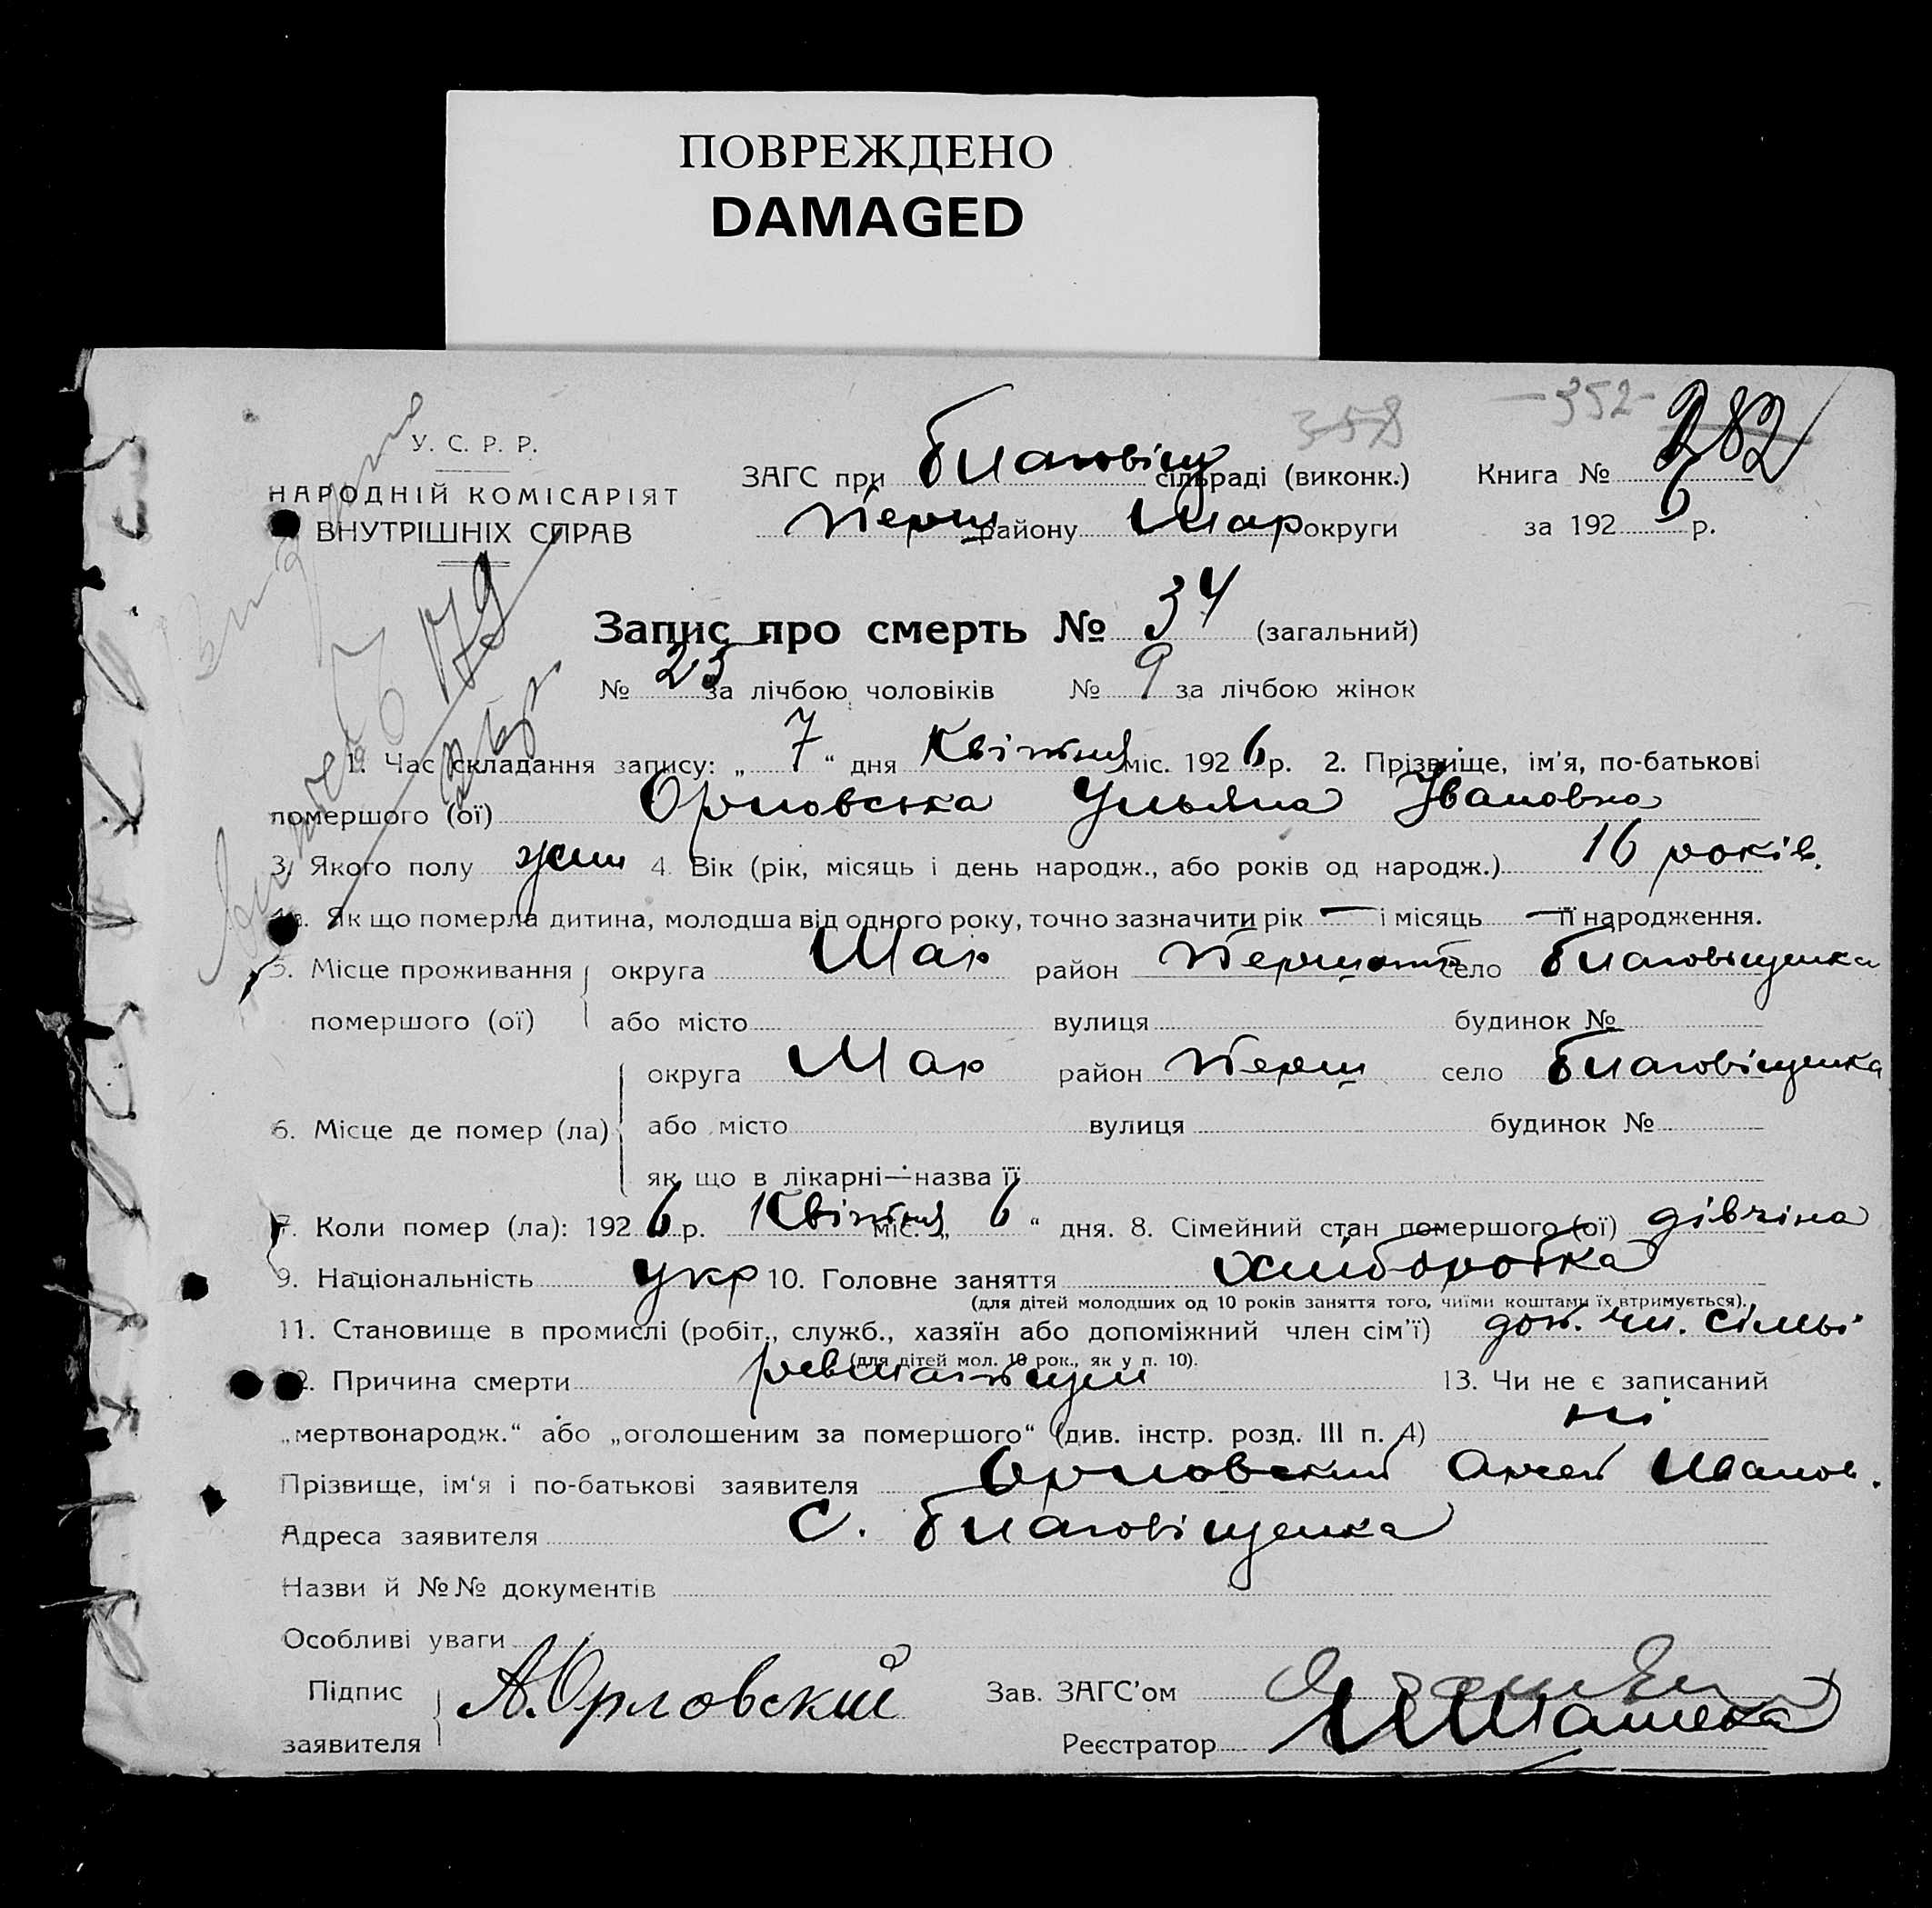 ПОВРЕЖДЕНО
DAMAGED
358 -352- 282
У. С. Р. Р.
НАРОДНІЙ КОМІСАРІЯТ
ВНУТРІШНІХ СПРАВ
ЗАГС при Благовіщ сільраді (виконк.) Книга №
Перш району Мар округи за 1926 р.
179
Запис про смерть № 34 (загальний)
№ 25 за лічбою чоловіків № 9 за лічбою жінок
1. Час складання запису: „ 7 “ дня Квітня міс. 1926 р. 2. Прізвище, ім’я, по-батькові
помершого (ої) Орловська Ульяна Івановна
3. Якого полу жін 4. Вік (рік, місяць і день народж., або років од народж.) 16 років.
4а. Як що померла дитина, молодша від одного року, точно зазначити рік — і місяць — її народження.
5. Місце проживання округа Мар район село Благовіщенка
помершого (ої) або місто вулиця будинок №
округа Мар район Перш село Благовіщенка
6. Місце де помер (ла) або місто вулиця будинок №
як що в лікарні—назва її
7. Коли помер (ла): 1926 р. Квітня міс. „ 6 “ дня. 8. Сімейний стан помершого (ої) дівчіна
9. Національність укр 10. Головне заняття хліборобка
(для дітей молодших од 10 років заняття того, чиїми коштами їх втримується).
11. Становище в промислі (робіт., служб., хазяїн або допоміжний член сім’ї) доп. чл. сімьі
(для дітей мол. 10 рок., як у п. 10).
12. Причина смерти 13. Чи не є записаний
„мертвонародж.“ або „оголошеним за помершого“ (див. інстр. розд. III п. 4) ні
Прізвище, ім‘я і по-батькові заявителя Орловский Иванов.
Адреса заявителя С. Благовіщенка
Назви й №№ документів
Особливі уваги
Підпис А. Орловский Зав. ЗАГС’ом
заявителя Реєстратор